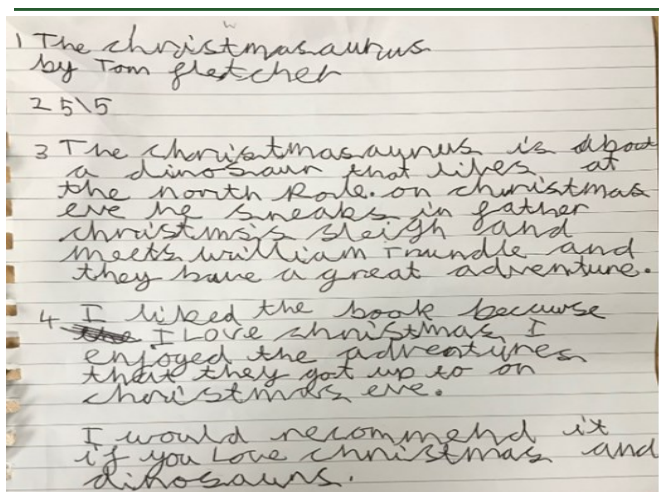 1 The christmasaurus
by Tom fletcher
2 5\5
3 The christmasaurus is about
a dinosaur that lives at
the north Role. on christmas
eve he sneaks in father
christms's sleigh and
meets william Trundle and
they have a great adventure.
4 I liked the book because
I Love christmas I
enjoyed the adventures
that they got up to on
christmas eve.
I would recommend it
if you Love christmas and
dinosaurs.